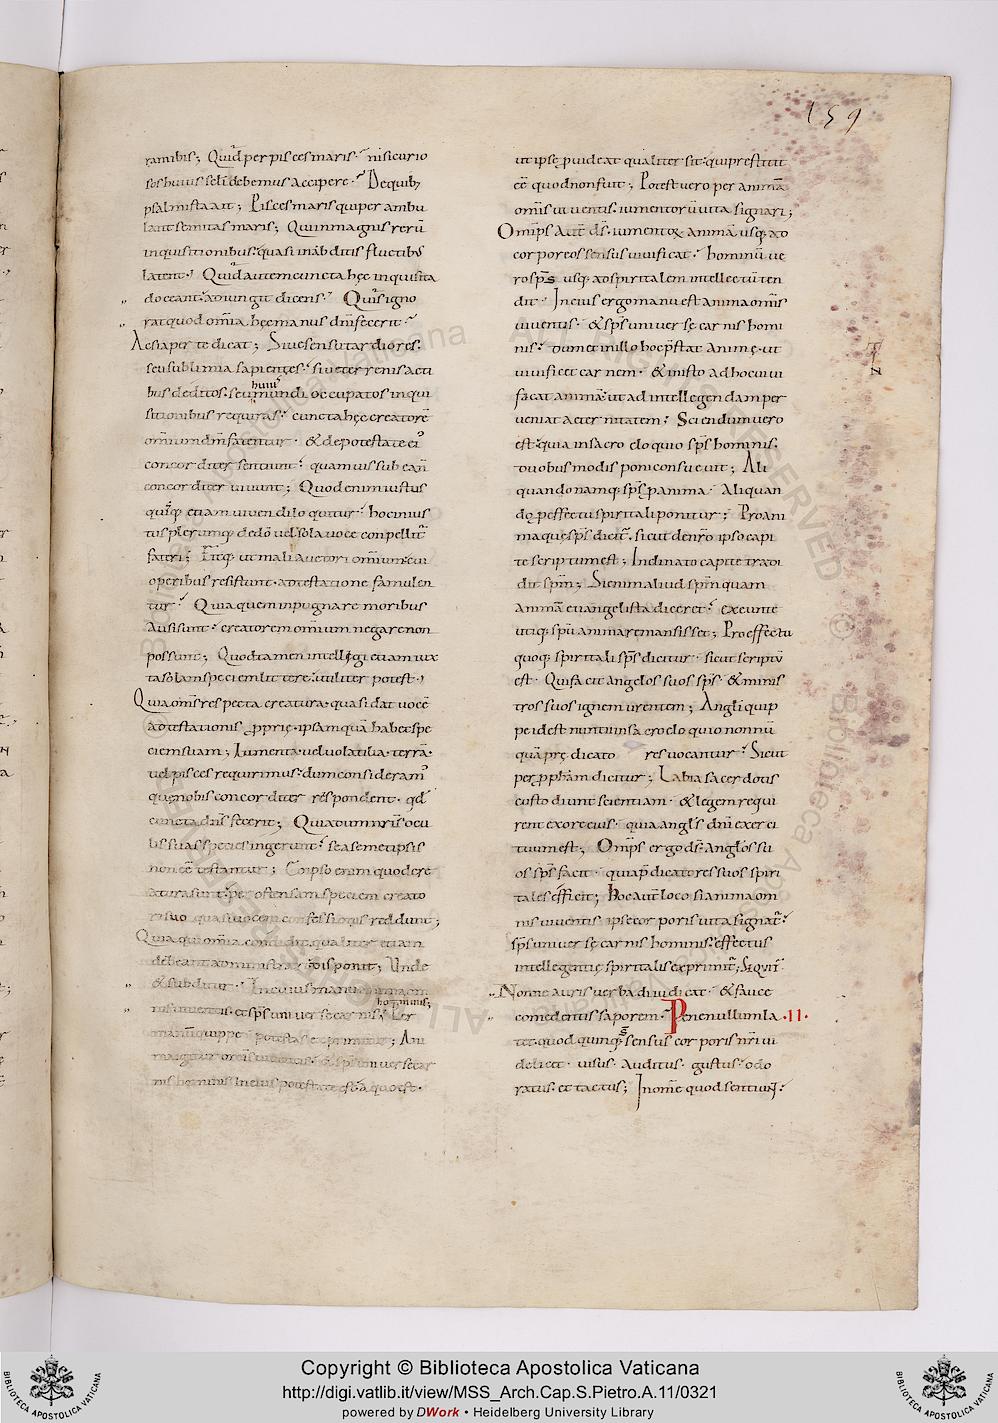 159
rambis; Quid per pisces maris· nisi curio
sos huius scli debemus accipere· De quib;
psalmista ait; Pisces maris qui per ambu
lant semitas maris; Qui in magnis rerū
inquisitionibus· quasi in abditis fluctibs
latent· Quid autem cuncta hęc inquisita
doceant· adiungit dicens· Quis igno
rat quod omīa hęc manus dnī fecerit·
Ac si aperte dicat; Siue sensu tardiores·
seu sublimia sapientes· siue terrenis acti
bus deditos· seu mundi occupatos inqui
huius
sitionibus requiras· cuncta hęc creatorē
omnium dm̄ fatentur· & de potestate ei'
concorditer sentiunt· quamuis sub ea n̄
concorditer uiuunt; Quod enim iustus
quisq; etiam uiuendi loquitur· hoc inius
tus plerumq; de dō uel sola uoce conpellit̄
fateri; Fitq; ut mali auctori omnium· cui
operibus resistunt· adtestatione famulen
tur· Quia quem inpugnare moribus
ausi sunt· creatorem omnium negare non
possunt; Quod tamen intellegi etiam iux
ta solam speciem litterę utiliter potest·
Quia omīs respecta creatura· quasi dat uocē
adtestationis proprię· ipsam quā habet spe
ciem suam; Iumenta· uel uolatilia· terrā·
uel pisces requirimus· dum consideram'
quę nobis concorditer respondent· qd
cuncta dns̄ fecerit; Quia dum nr̄is ocu
lis suas species ingerunt· se a semetipsis
non ēē testantur; Eo ipso enim quo dere
ata sunt· per ostensam speciem creato
ri suo quasi uocem confessionis reddunt;
Qui a qui omīa condidit· qualiter etiam
debeant administrari disponit; Unde
& subditur· In cuius manu anima om
nis uiuentis· et sps̄ uniuersę carnis; Per
hominis;
manū quippe potestas exprimitur; Ani
ma igitur omīs uiuentis· & sps̄ uniuersę car
nis hominis in eius potestate est· a quo est·
ut ipsę puideat qualiter sit· qui prestitit
ēē quod non fuit; Potest uero per animā
omīs uiuentis· iumentorū uita signari;
Omīps autē ds̄· iumentorum animā usq; ad
corporeos sensus uiuificat· hominū ue
ro sps̄ usq; ad spiritalem intellectū ten
dit· In eius ergo manu est anima omīs
uiuentis· & sps̄ uniuersę carnis homi
nis· dum et in illo hoc pr̄stat animę· ut
uiuificet carnem· & in isto ad hoc uiui
facat animā· ut ad intellegendam per
ueniat aeternitatem; Sciendum uero
est· quia in sacro eloquio sps̄ hominis·
duobus modis poni consueuit; Ali
quando namq; sps̄ p anima· Aliquan
do p effectu spiritali ponitur; Pro ani
ma quę sps̄ dicit̄· sicut de nrō ipso capi
te scriptum est; Inclinato capite tradi
dit spm̄; Si enim aliud spm̄ quam
animā euangelista diceret· exeunte
utiq; spū anima remansisset; Pro effectu
quoq; spiritali sps̄ dicitur· sicut scriptū
est· Qui facit angelos suos sps̄· & minis
tros suos ignem urentem; Angli quip
pe id est nuntii in sacro eloquio nonnū
quā prędicatores uocantur· Sicut
per pphām dicitur; Labia sacerdotis
custodiunt scientiam· & legem requi
rent ex ore eius· quia angls̄ dnī exerci
tuum est; Omīps ergo ds̄· anglos su
os sps̄ facit· qui apdicatores suos spiri
tales efficit; Hoc autē loco si anima om
nis uiuentis ipse corporis uita signat̄·
sps̄ uniuersę carnis hominis· effectus
intellegentię spiritalis exprimit̄; Sequit̄
Nonne auris uerba diiudicat· & fauce
comedentis saporem· Penę nullum la ·II·
tet· quod quinq; sensus corporis nr̄i ui
delicet· uisus· auditus· gustus· odo
ratus· et tactus; In om̄e quod sentiunt·
Copyright © Biblioteca Apostolica Vaticana
http://digi.vatlib.it/view/MSS_Arch.Cap.S.Pietro.A.11/0321
powered by DWork • Heidelberg University Library